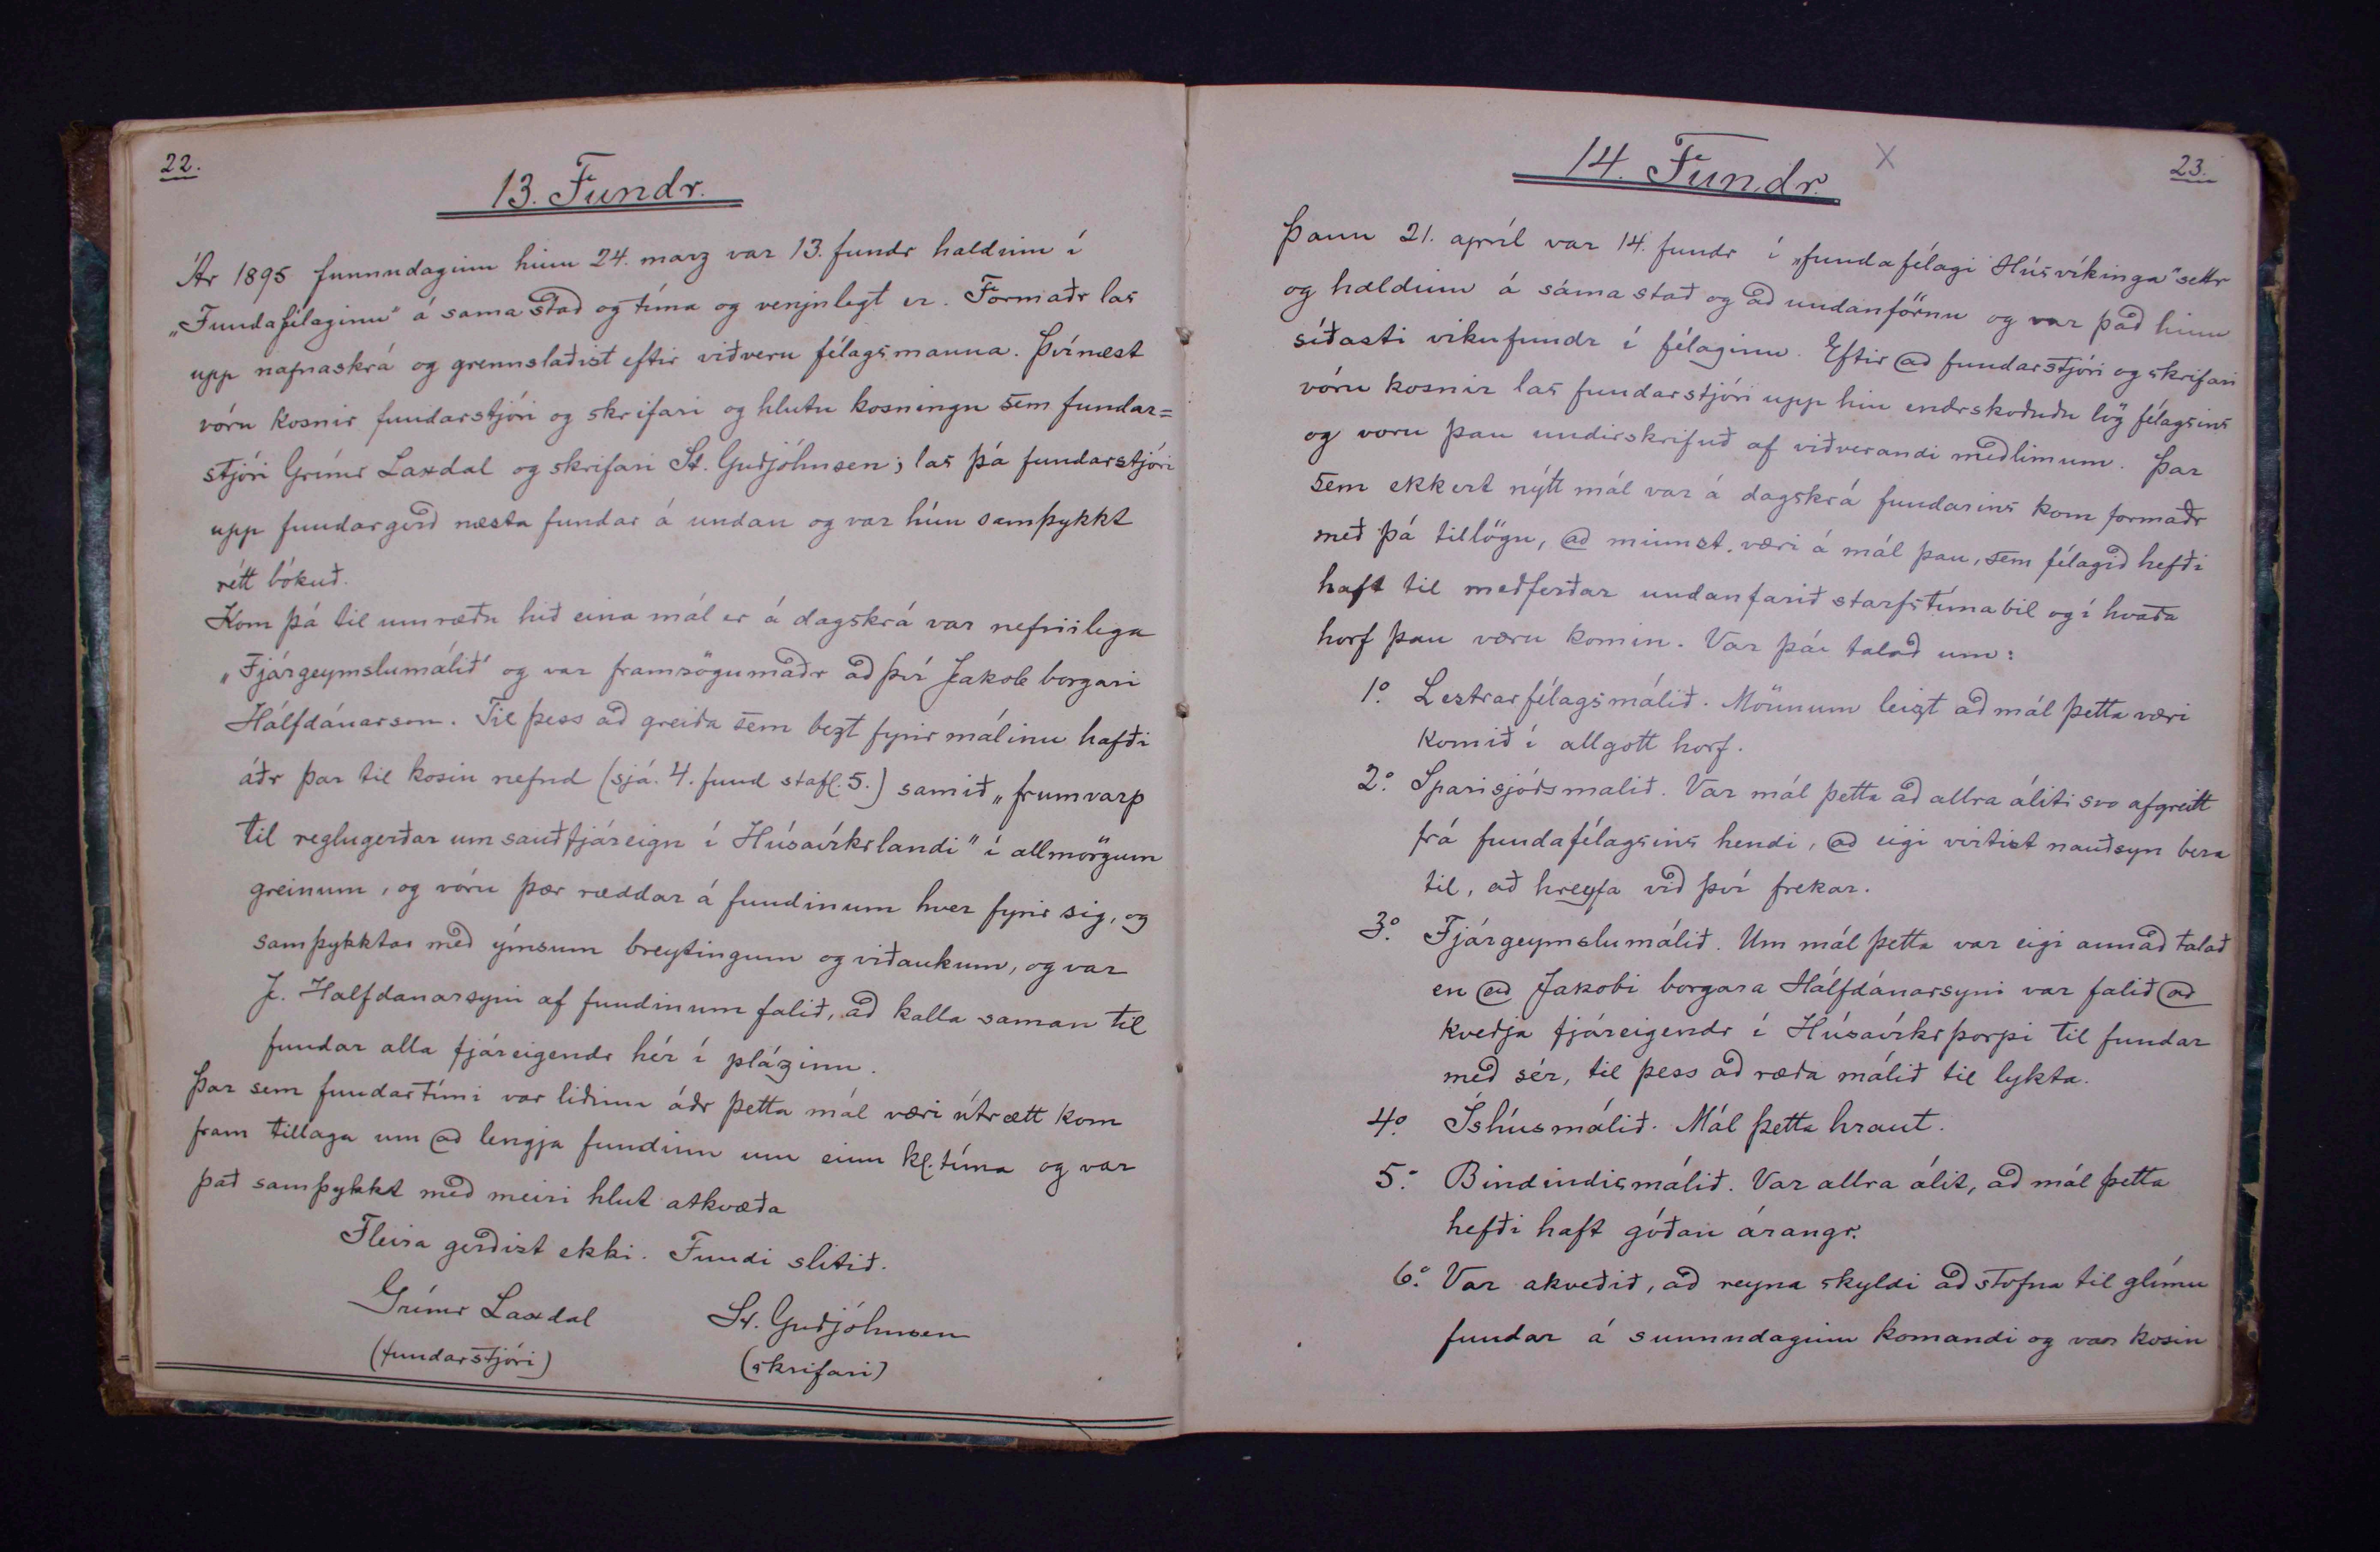 22.
13. Fundr.
Ár 1895 sunnudaginn hinn 24. marz var 13. fundr haldinn í
„Fundafélaginu“ á sama stað og tíma og venjulegt er. Formaðr las
upp nafnaskrá og grennslaðist eftir viðveru félagsmanna. Þvínæst
vóru kosnir fundarstjóri og skrifari og hlutu kosningu sem fundar=
stjóri Grímr Laxdal og skrifari St. Guðjóhnsen; las þá fundarstjóri
upp fundargerð næsta fundar á undan og var hún samþykkt
rétt bókuð.
Kom þá til umræðu hið eina mál er á dagskrá var nefnilega
„Fjárgeymslumálið“ og var framsögumaðr að því Jakob borgari
Hálfdánarson. Til þess að greiða sem bezt fyrir málinu hafði
áðr þar til kosin nefnd (sjá. 4. fund stafl. 5.) samið „frumvarp
til reglugerðar um sauðfjáreign í Húsavíkrlandi“ í allmörgum
greinum, og vóru þær ræddar á fundinum hver fyrir sig, og
samþykktar með ýmsum breytingum og viðaukum, og var
J. Halfdanarsyni af fundinum falið, að kalla saman til
fundar alla fjáreigendr hér í plázinu.
Þar sem fundartími var liðinn áðr þetta mál væri útrætt kom
fram tillaga um að lengja fundinn um einn kl.tíma og var
það samþykkt með meiri hlut atkvæða
Fleira gerðist ekki. Fundi slitið.
Grímr Laxdal St. Guðjóhnsen
(fundarstjóri) (skrifari)
23.
14. Fundr. X
Þann 21. apríl var 14. fundr í „fundafélagi Húsvíkinga“ settr
og haldinn á sama stað og að undanförnu og var það hinn
síðasti vikufundr í félaginu. Eftir að fundarstjóri og skrifari
vóru kosnir las fundarstjóri upp hin endrskoðuðu lög félagsins
og voru þau undirskrifuð af viðverandi meðlimum. Þar
sem ekkert nýtt mál var á dagskrá fundarins kom formaðr
með þá tillögu, að minnst væri á mál þau, sem félagið hefði
haft til meðferðar undanfarið starfstímabil og í hvaða
horf þau væru komin. Var þá talað um:
1.º Lestrarfélagsmálið. Mönnum leizt að mál þetta væri
komið í allgott horf.
2.º Sparisjóðsmalið. Var mál þetta að allra áliti svo afgreitt
frá fundafélagsins hendi, að eigi virtist nauðsyn bera
til, að hreyfa við því frekar.
3.º Fjárgeymslumálið. Um mál þetta var eigi annað talað
en að Jakobi borgara Hálfdánarsyni var falið að
kveðja fjáreigendr í Húsavíkrþorpi til fundar
með sér, til þess að ræða málið til lykta.
4.º Íshúsmálið. Mál þetta hraut.
5.º Bindindismálið. Var allra álit, að mál þetta
hefði haft góðan árangr.
6.º Var akveðið, að reyna skyldi að stofna til glímu
fundar á sunnudaginn komandi og var kosin